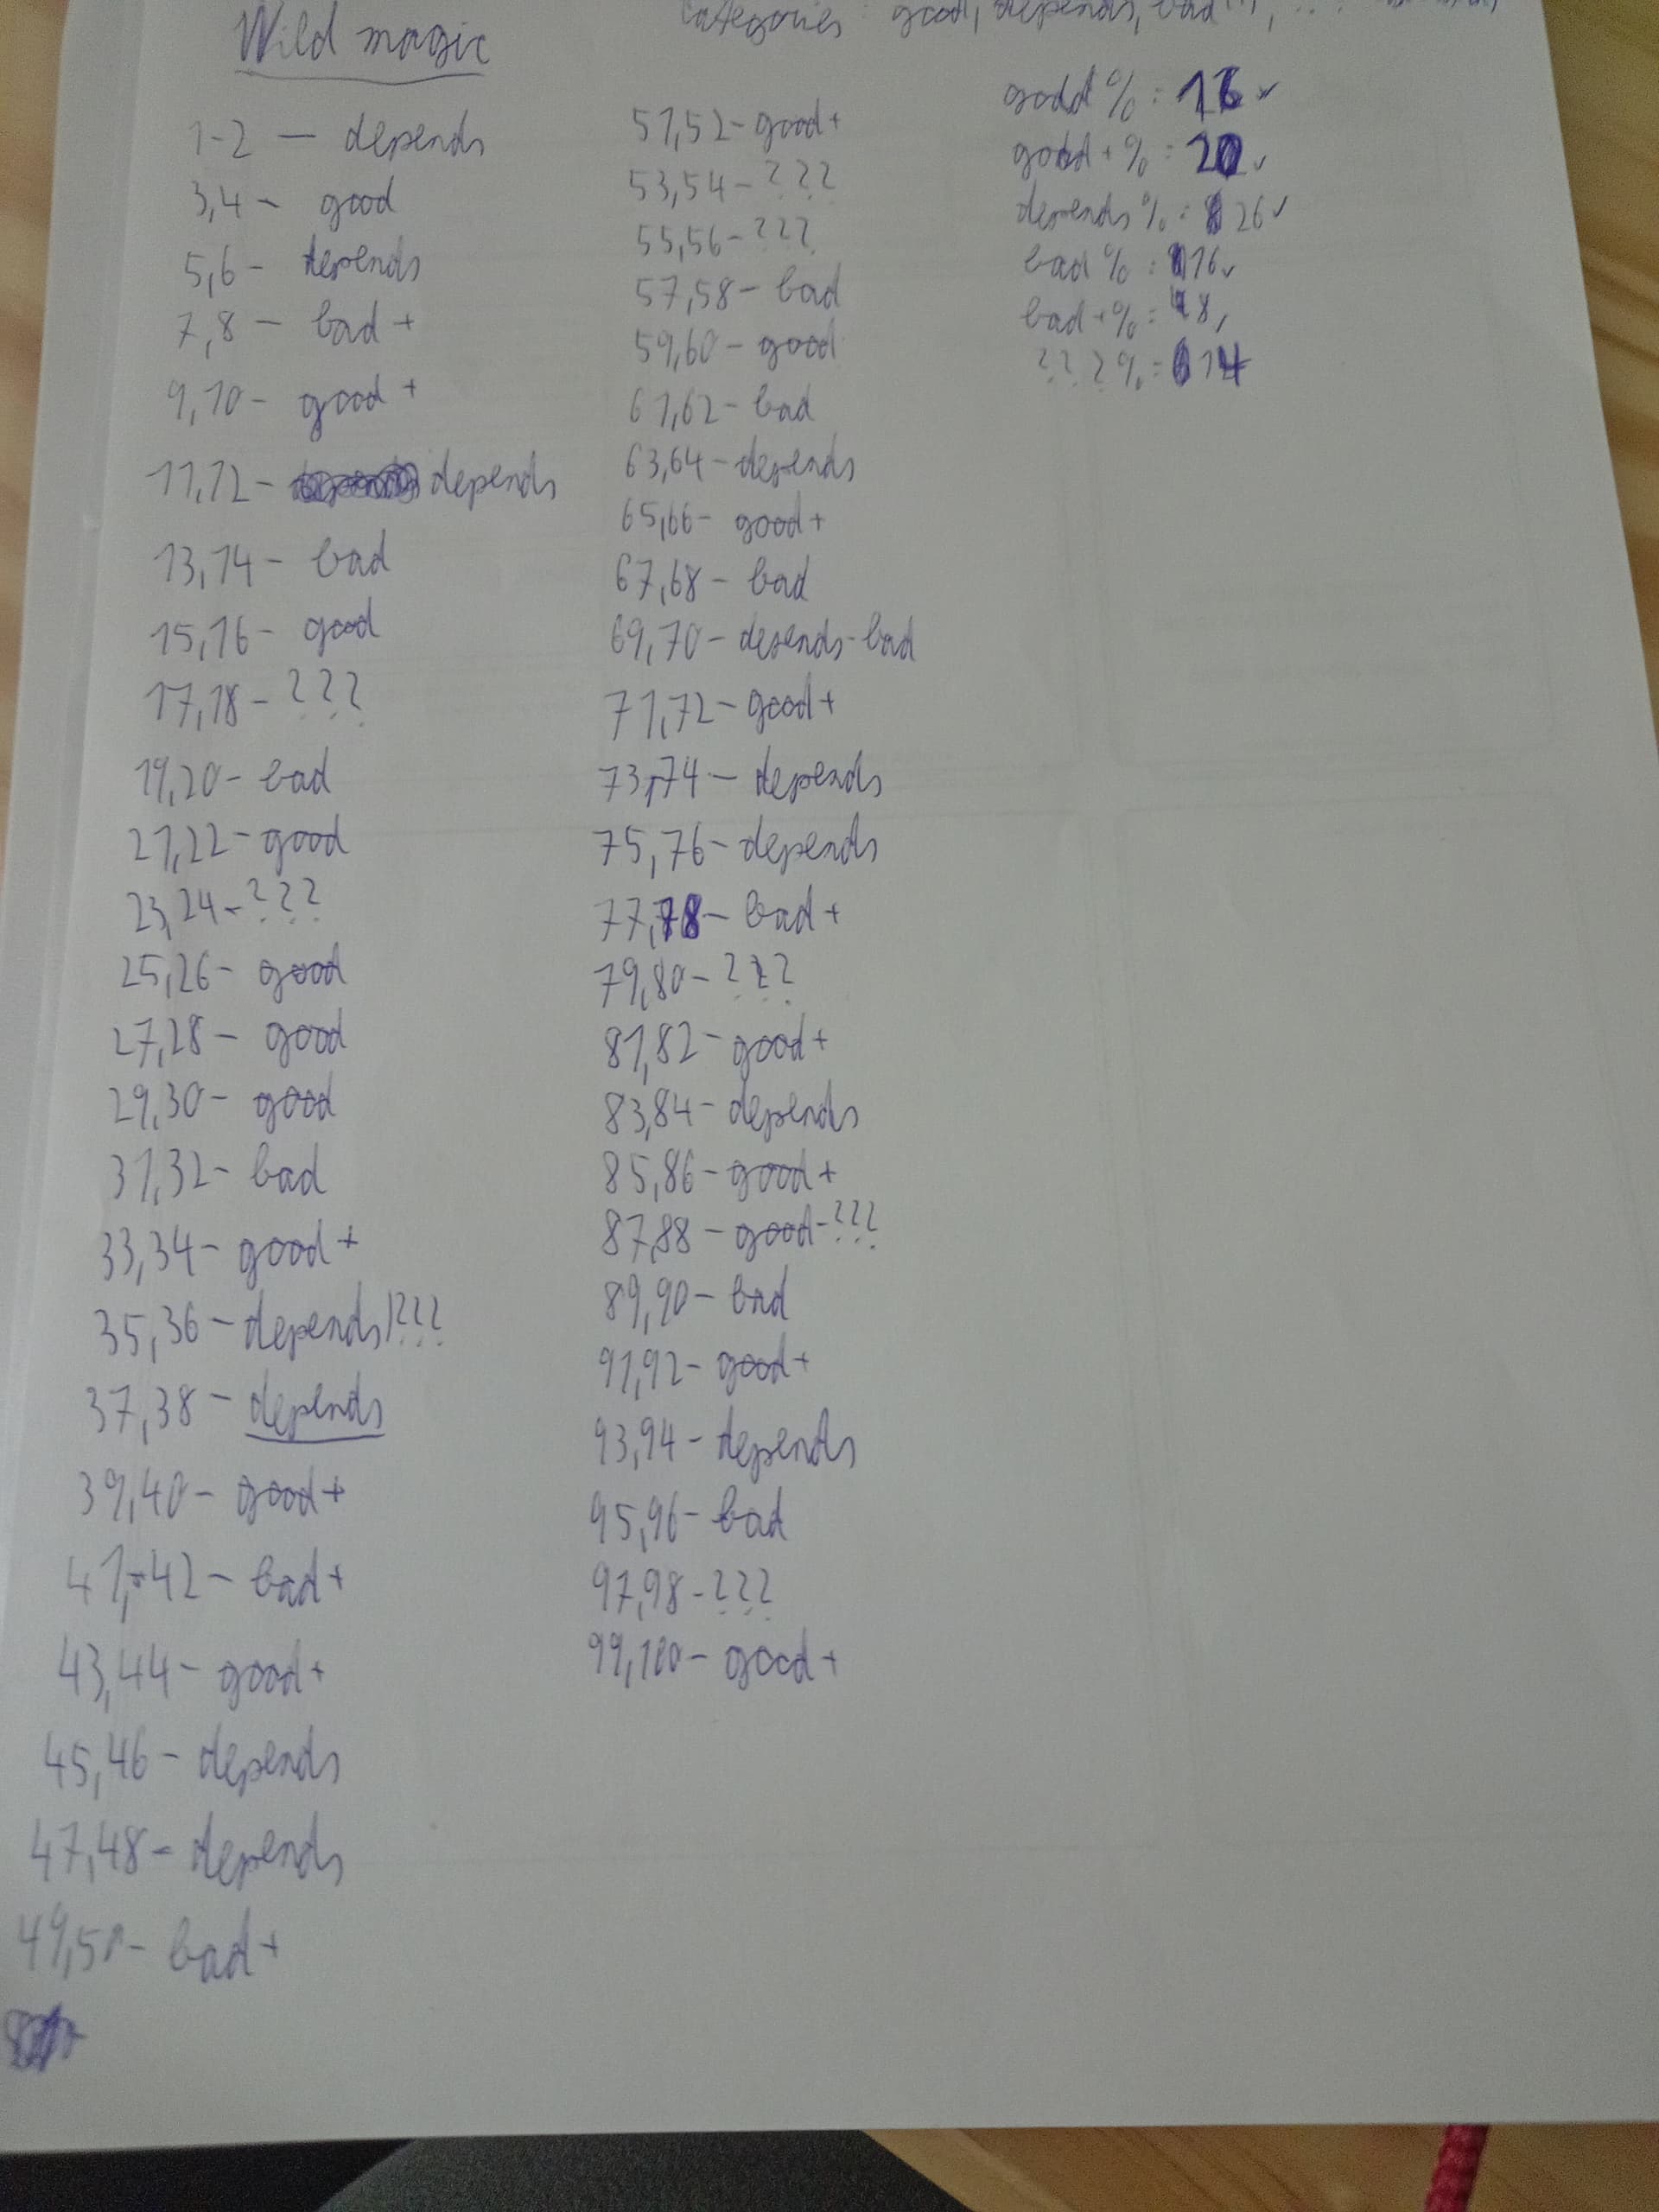 Wild magic
1-2 — depends
3,4 - good
5,6 - depends
7,8 - bad +
9,10 - good +
11,12 - depends
13,14 - bad
15,16 - good
17,18 - ???
19,20 - bad
21,22 - good
23,24 - ???
25,26 - good
27,28 - good
29,30 - good
31,32 - bad
33,34 - good +
35,36 - depends/???
37,38 - depends
39,40 - good +
41,42 - bad +
43,44 - good +
45,46 - depends
47,48 - depends
49,50 - bad +
categories good, depends, bad
51,52 - good +
53,54 - ???
55,56 - ???
57,58 - bad
59,60 - good
61,62 - bad
63,64 - depends
65,66 - good +
67,68 - bad
69,70 - depends-bad
71,72 - good +
73,74 - depends
75,76 - depends
77,78 - bad +
79,80 - ???
81,82 - good +
83,84 - depends
85,86 - good +
87,88 - good-???
89,90 - bad
91,92 - good +
93,94 - depends
95,96 - bad
97,98 - ???
99,100 - good +
good % : 16 ✓
good + % : 20 ✓
depends % : 26 ✓
bad % : 16 ✓
bad + % = 8
??? % = 14